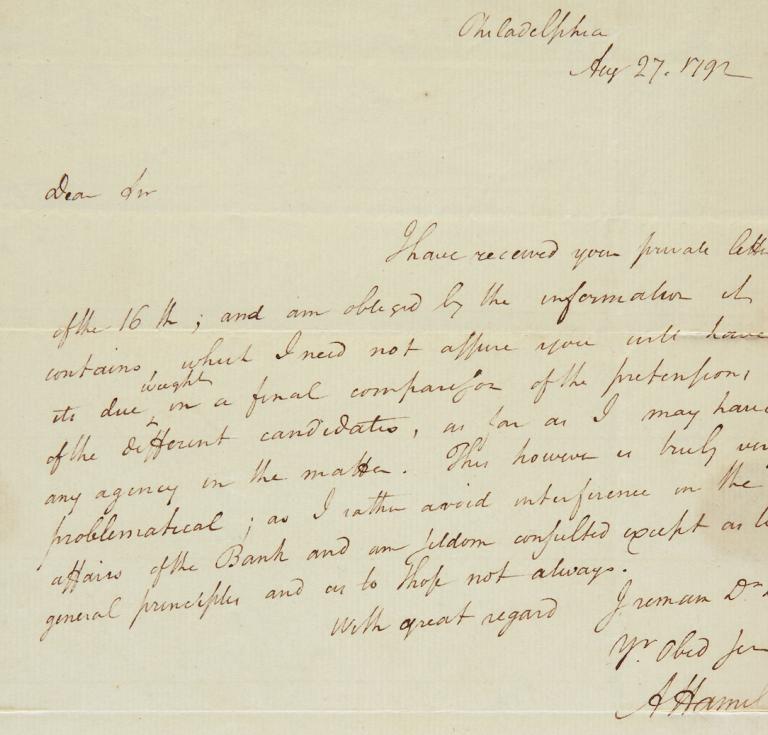 Philadelphia
Aug 27. 1792
Dear Sir
I have received your private lette
of the 16th; and am obliged by the information it
contains, which I need not assure you will have
weight
its due ‸ in a final comparison of the pretensions
of the different candidates, as far as I may have
any agency in the matter. This however is truly ver
problematical; as I rather avoid interference in the
affairs of the Bank and am seldom consulted except as to
general principles and as to those not always.
With great regard I remain Dr
Yr Obed Ser
A Hamil